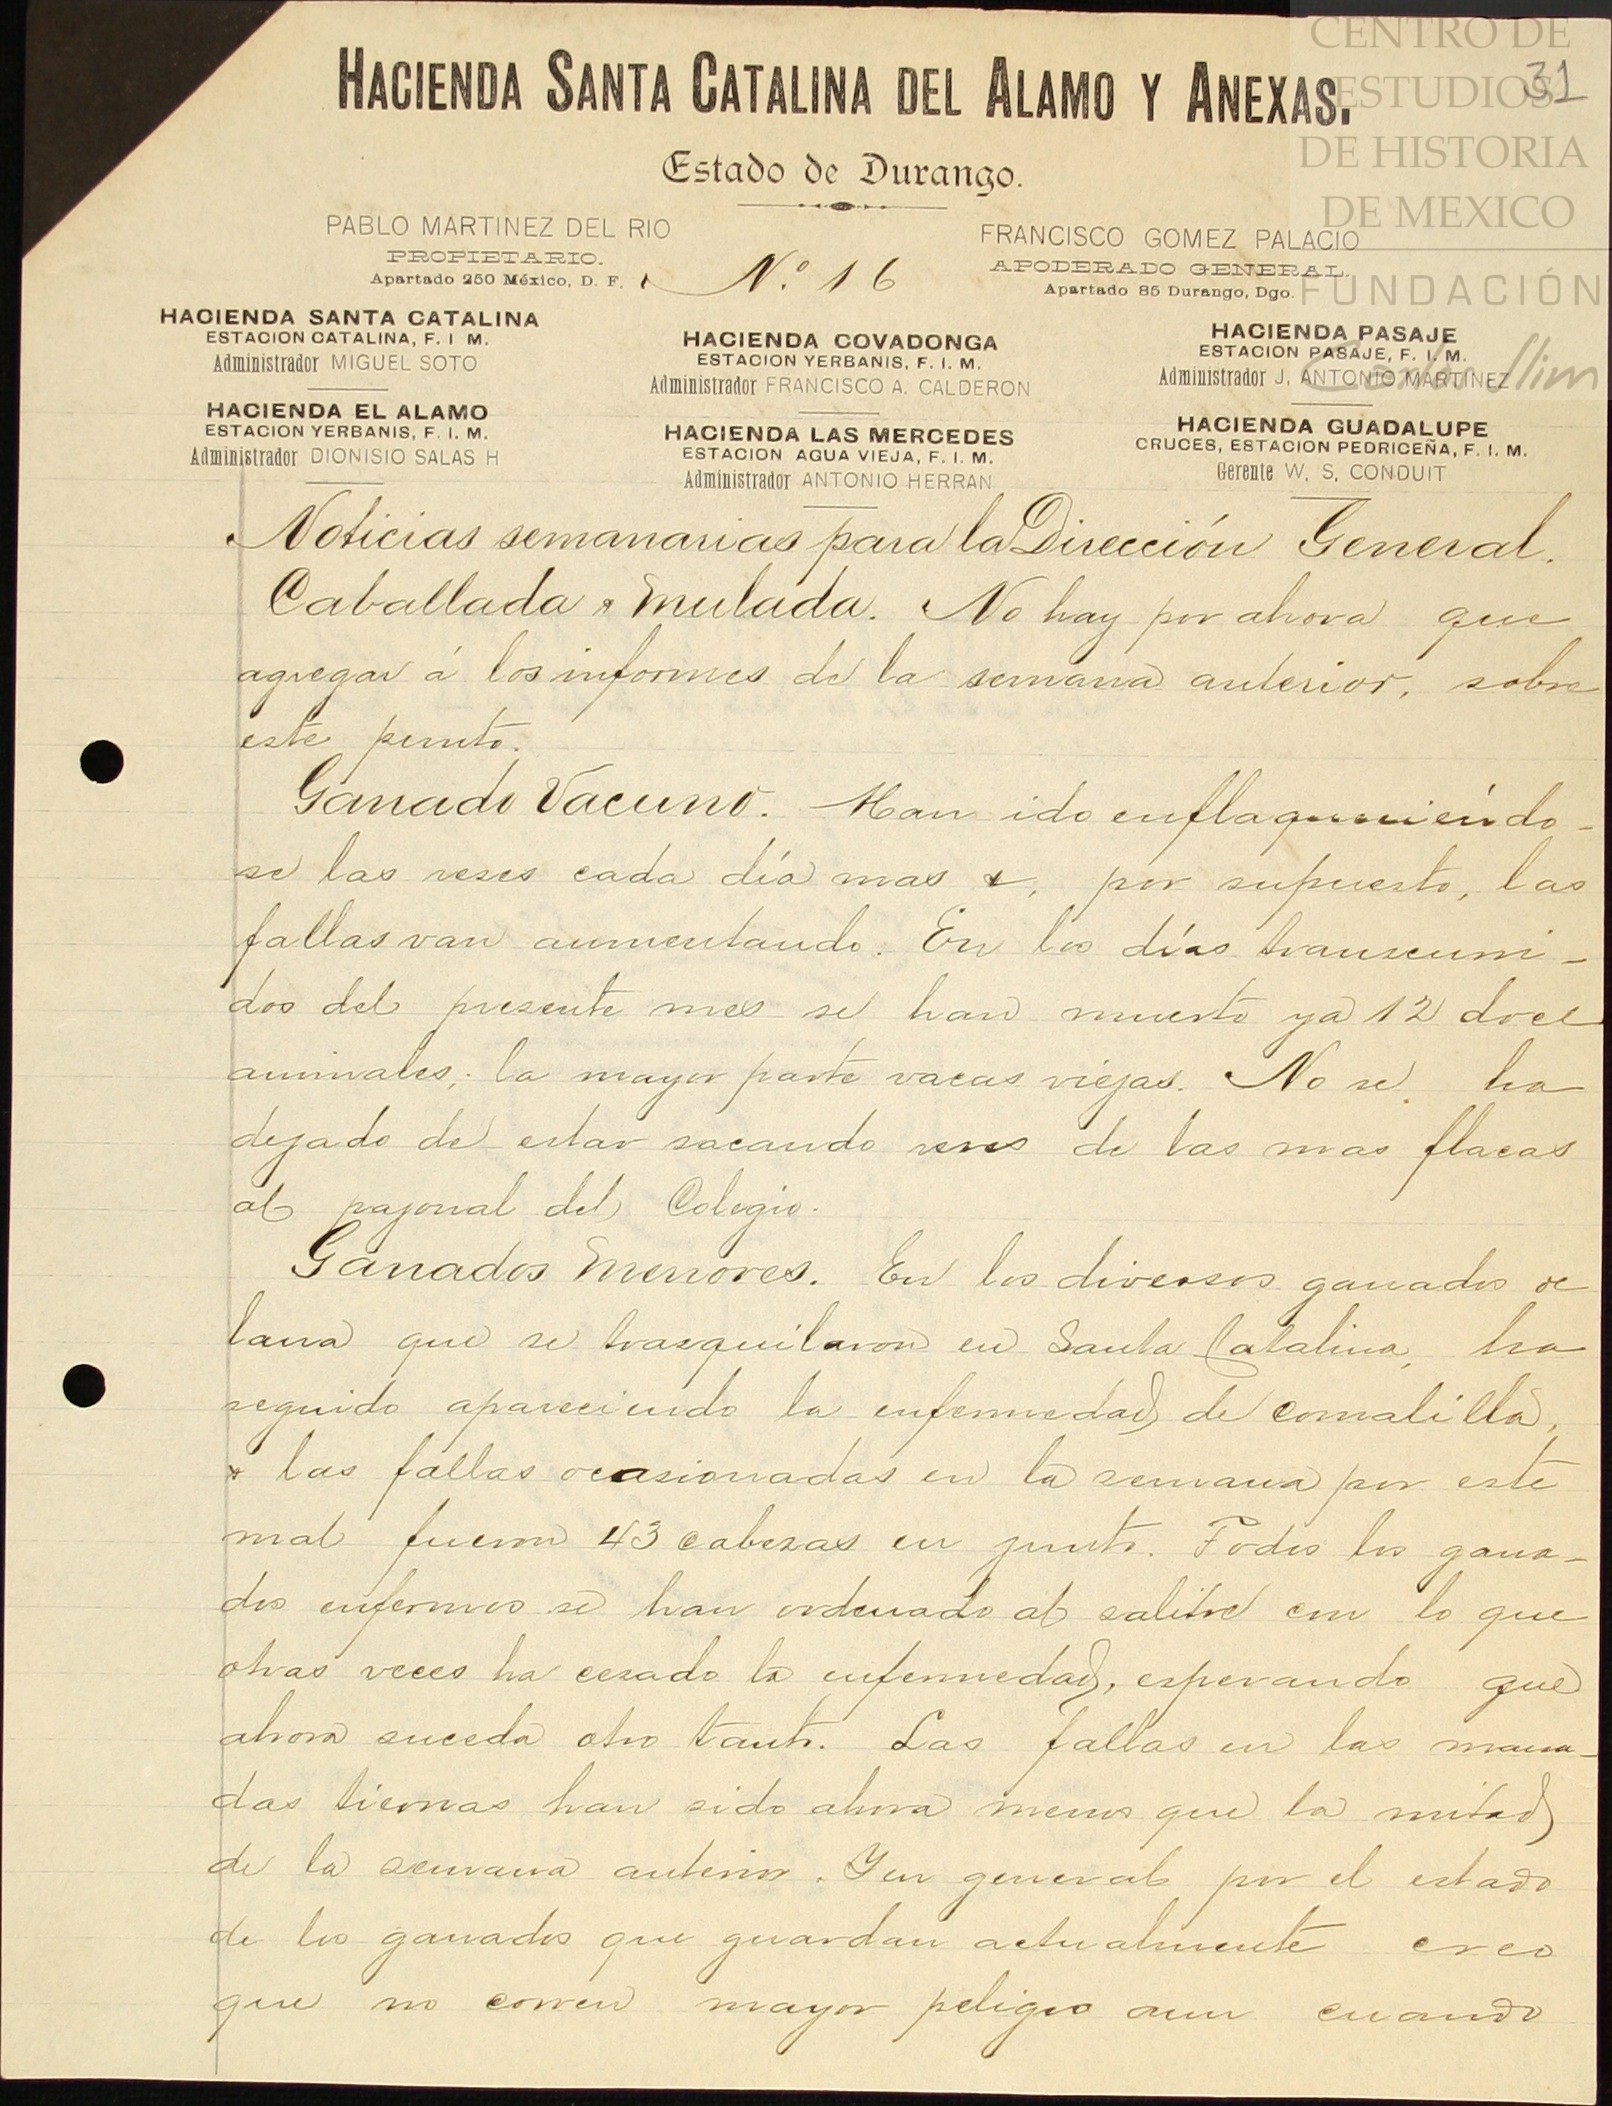 CENTRO DE
ESTUDIOS
DE HISTORIA
DE MEXICO
FUNDACIÓN
Carlos Slim
31
HACIENDA SANTA CATALINA DEL ALAMO Y ANEXAS.
Estado de Durango.
PABLO MARTINEZ DEL RIO
PROPIETARIO.
Apartado 250 México, D. F.
N.º 16
FRANCISCO GOMEZ PALACIO
APODERADO GENERAL.
Apartado 85 Durango, Dgo.
HACIENDA SANTA CATALINA
ESTACION CATALINA, F. I M.
Administrador MIGUEL SOTO
HACIENDA EL ALAMO
ESTACION YERBANIS, F. I. M.
Administrador DIONISIO SALAS H
HACIENDA COVADONGA
ESTACION YERBANIS, F. I. M.
Administrador FRANCISCO A. CALDERON
HACIENDA LAS MERCEDES
ESTACION AGUA VIEJA, F. I. M.
Administrador ANTONIO HERRAN
HACIENDA PASAJE
ESTACION PASAJE, F. I. M.
Administrador J. ANTONIO MARTINEZ
HACIENDA GUADALUPE
CRUCES, ESTACION PEDRICEÑA, F. I. M.
Gerente W. S. CONDUIT
Noticias semanarias para la Dirección General.
Caballada y Mulada. No hay por ahora que
agregar á los informes de la semana anterior, sobre
este punto.
Ganado Vacuno. Han ido enflaqueciéndo-
se las reses cada día mas y, por supuesto, las
fallas van aumentando. En los días transcurri-
dos del presente mes se han muerto ya 12 doce
animales, la mayor parte vacas viejas. No se ha
dejado de estar sacando reses de las mas flacas
al pajonal del Colegio.
Ganados Menores. En los diversos ganados de
lana que se trasquilaron en Santa Catalina, ha
seguido apareciendo la enfermedad de comalilla,
y las fallas ocasionadas en la semana por este
mal fueron 43 cabezas en junto. Todos los gana-
dos enfermos se han ordenado al salitre con lo que
otras veces ha cesado la enfermedad, esperando que
ahora suceda otro tanto. Las fallas en las mana-
das tiernas han sido ahora menos que la mitad
de la semana anterior. Y en general por el estado
de los ganados que guardan actualmente creo
que no corren mayor peligro aun cuando